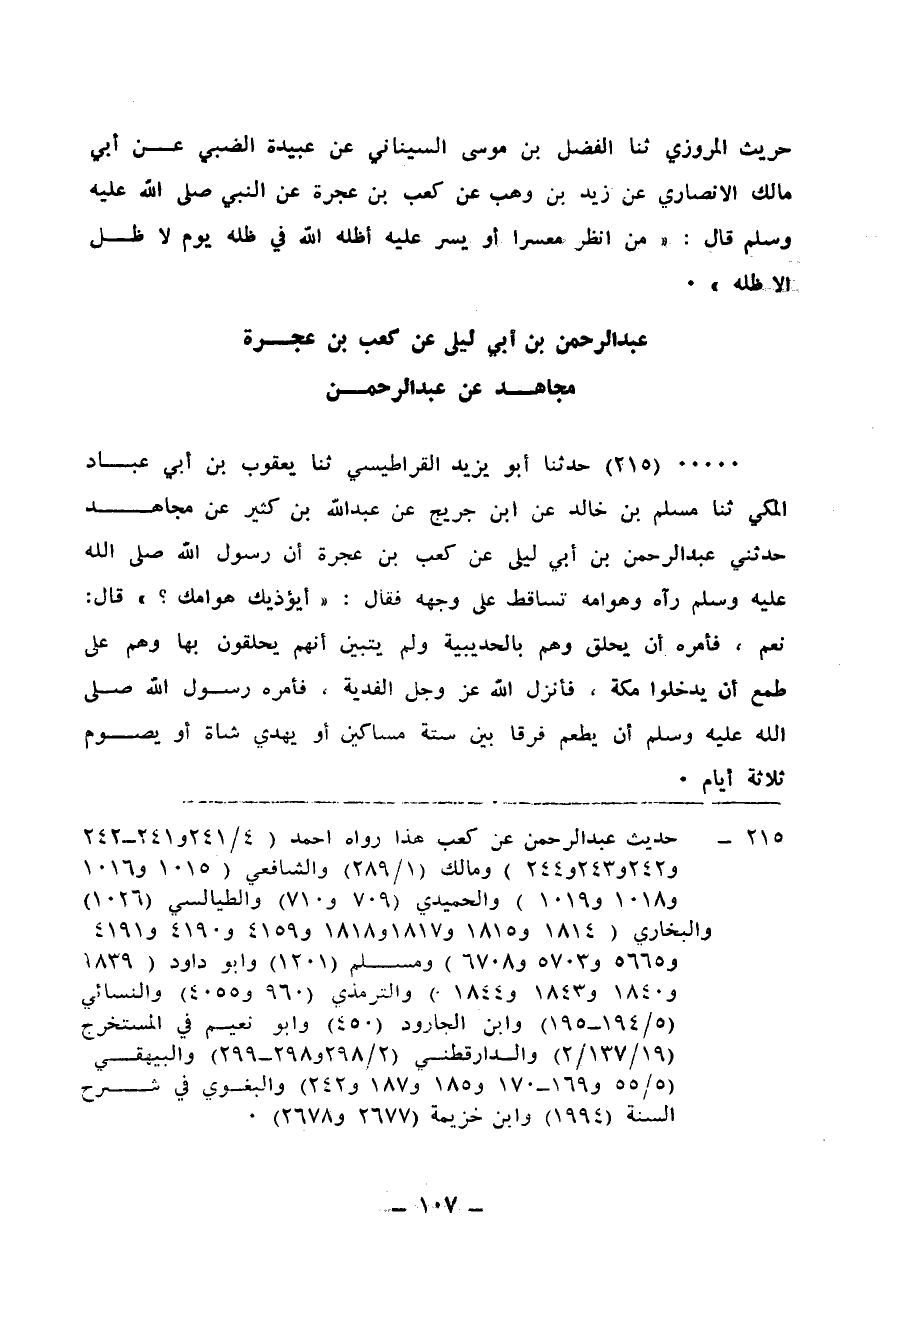 حريث المروزي ثنا الفضل بن موسى السيناني عن عبيدة الضبي عن أبي
مالك الانصاري عن زيد بن وهب عن كعب بن عجرة عن النبي صلى الله عليه
وسلم قال : « من انظر معسرا أو يسر عليه أظله الله في ظله يوم لا ظل
الا ظله » ٠
عبدالرحمن بن أبي ليلى عن كعب بن عجرة
مجاهد عن عبدالرحمن
٠٠٠٠٠ (٢١٥) حدثنا أبو يزيد القراطيسي ثنا يعقوب بن أبي عباد
المكي ثنا مسلم بن خالد عن ابن جريج عن عبدالله بن كثير عن مجاهد
حدثني عبدالرحمن بن أبي ليلى عن كعب بن عجرة أن رسول الله صلى الله
عليه وسلم رآه وهوامه تساقط على وجهه فقال : « أيؤذيك هوامك ؟ » قال:
نعم ، فأمره أن يحلق وهم بالحديبية ولم يتبين أنهم يحلقون بها وهم على
طمع أن يدخلوا مكة ، فأنزل الله عز وجل الفدية ، فأمره رسول الله صلى
الله عليه وسلم أن يطعم فرقا بين ستة مساكين أو يهدي شاة أو يصوم
ثلاثة أيام ٠
٢١٥ ـ حديث عبدالرحمن عن كعب هذا رواه احمد ( ٤/٢٤١و٢٤١ـ٢٤٢
و٢٤٢و٢٤٣و٢٤٤ ) ومالك (١/٢٨٩) والشافعي ( ١٠١٥ و١٠١٦
و١٠١٨ و١٠١٩ ) والحميدي (٧٠٩ و٧١٠) والطيالسي (١٠٢٦)
والبخاري ( ١٨١٤ و١٨١٥ و١٨١٧و١٨١٨ و٤١٥٩ و٤١٩٠ و٤١٩١
و٥٦٦٥ و٥٧٠٣ و٦٧٠٨ ) ومسلم (١٢٠١) وابو داود ( ١٨٣٩
و١٨٤٠ و١٨٤٣ و١٨٤٤ ) والترمذي (٩٦٠ و٤٠٥٥) والنسائي
(٥/١٩٤ـ١٩٥) وابن الجارود (٤٥٠) وابو نعيم في المستخرج
(١٩/١٣٧/٢) والدارقطني (٢/٢٩٨و٢٩٨ـ٢٩٩) والبيهقي
(٥/٥٥ و١٦٩ـ١٧٠ و١٨٥ و١٨٧ و٢٤٢) والبغوي في شرح
السنة (١٩٩٤) وابن خزيمة (٢٦٧٧ و٢٦٧٨) ٠
ـ ١٠٧ ـ